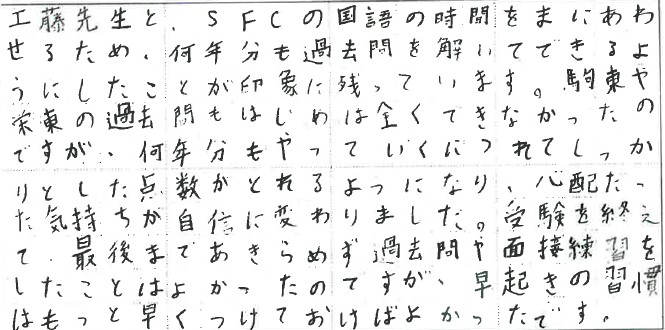 工藤先生と、SFCの国語の時間をまにあわ
せるため、何年分も過去問を解いてきるよ
うにしたことが印象に残っています。駒東や
栄東の過去問もはじめは全くできなかったの
ですが、何年分もやっていくにつれてしっか
りとした点数がとれるようになり、心配だっ
た気持ちが自信に変わりました。受験を終え
て、最後まであきらめず過去問や面接練習を
したことはよかったのですが、早起きの習慣
はもっと早くつけておけばよかったです。